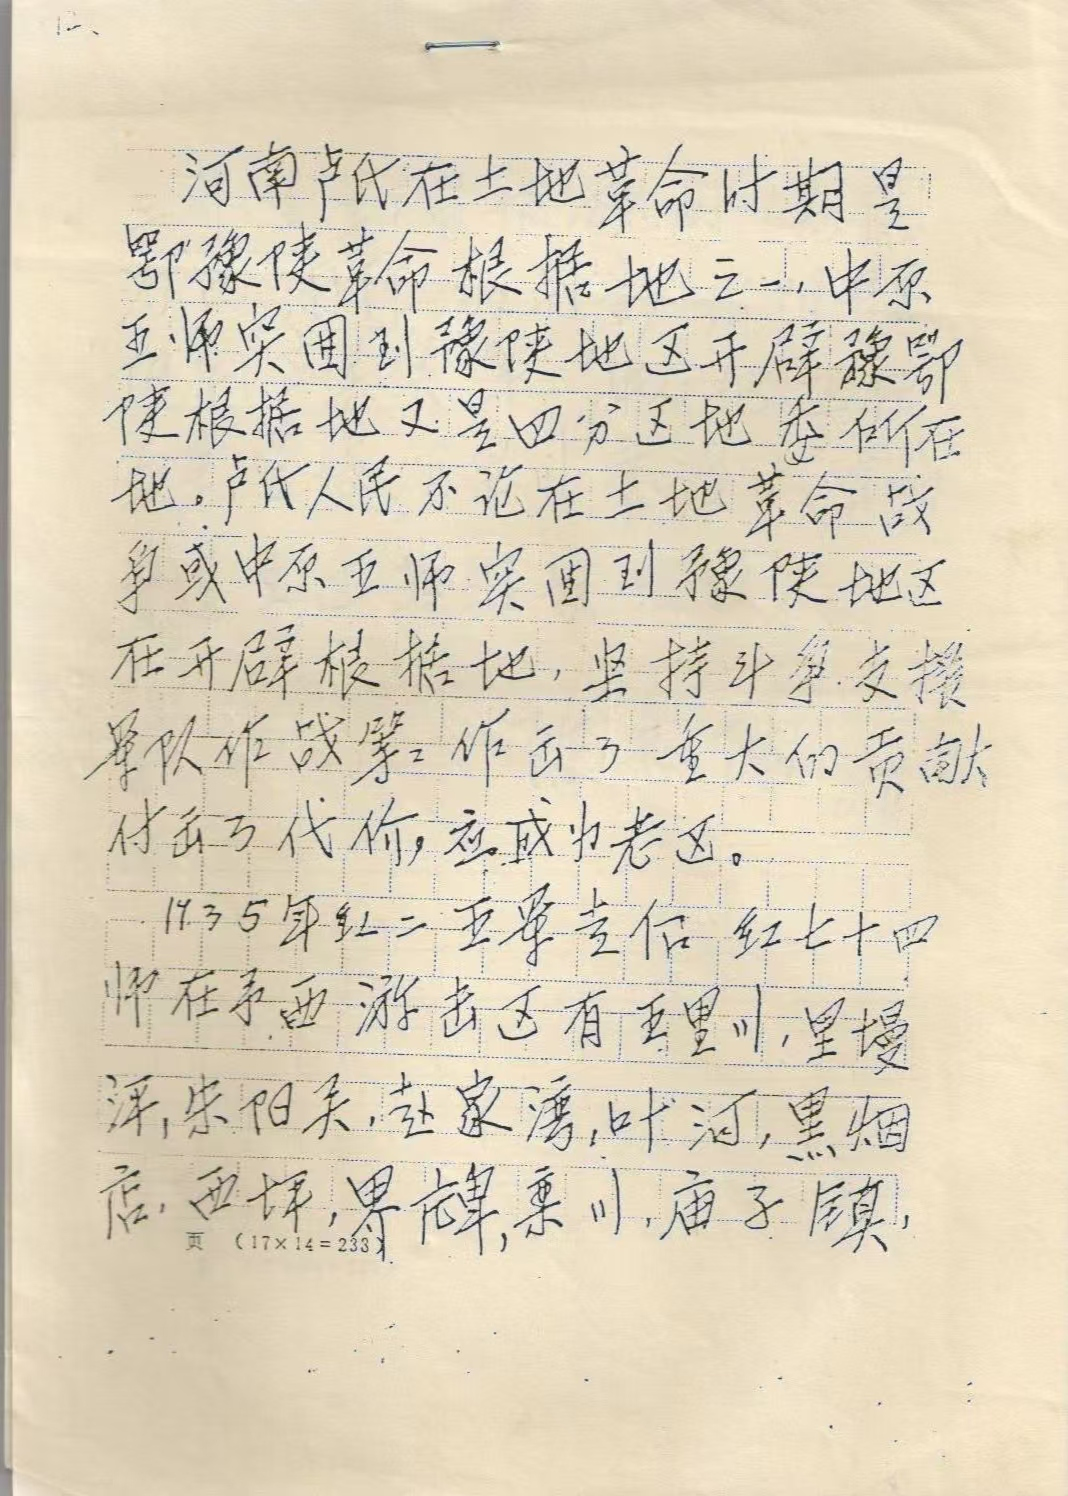 河南卢氏在土地革命时期是
鄂豫陕革命根据地之一,中原
五师突围到豫陕地区开辟豫鄂
陕根据地又是四分区地委所在
地。卢氏人民不论在土地革命战
争或中原五师突围到豫陕地区
在开辟根据地,坚持斗争支援
军队作战等:作出了重大的贡献
付出了代价,应成为老区。
1935年红二五军走后 红七十四
师在予西游击区有五里川,里墁
坪,朱阳关,赵家湾,叶河,黑烟
店,西坪,界碑,栗川,庙子镇,
页 (17×14=233)